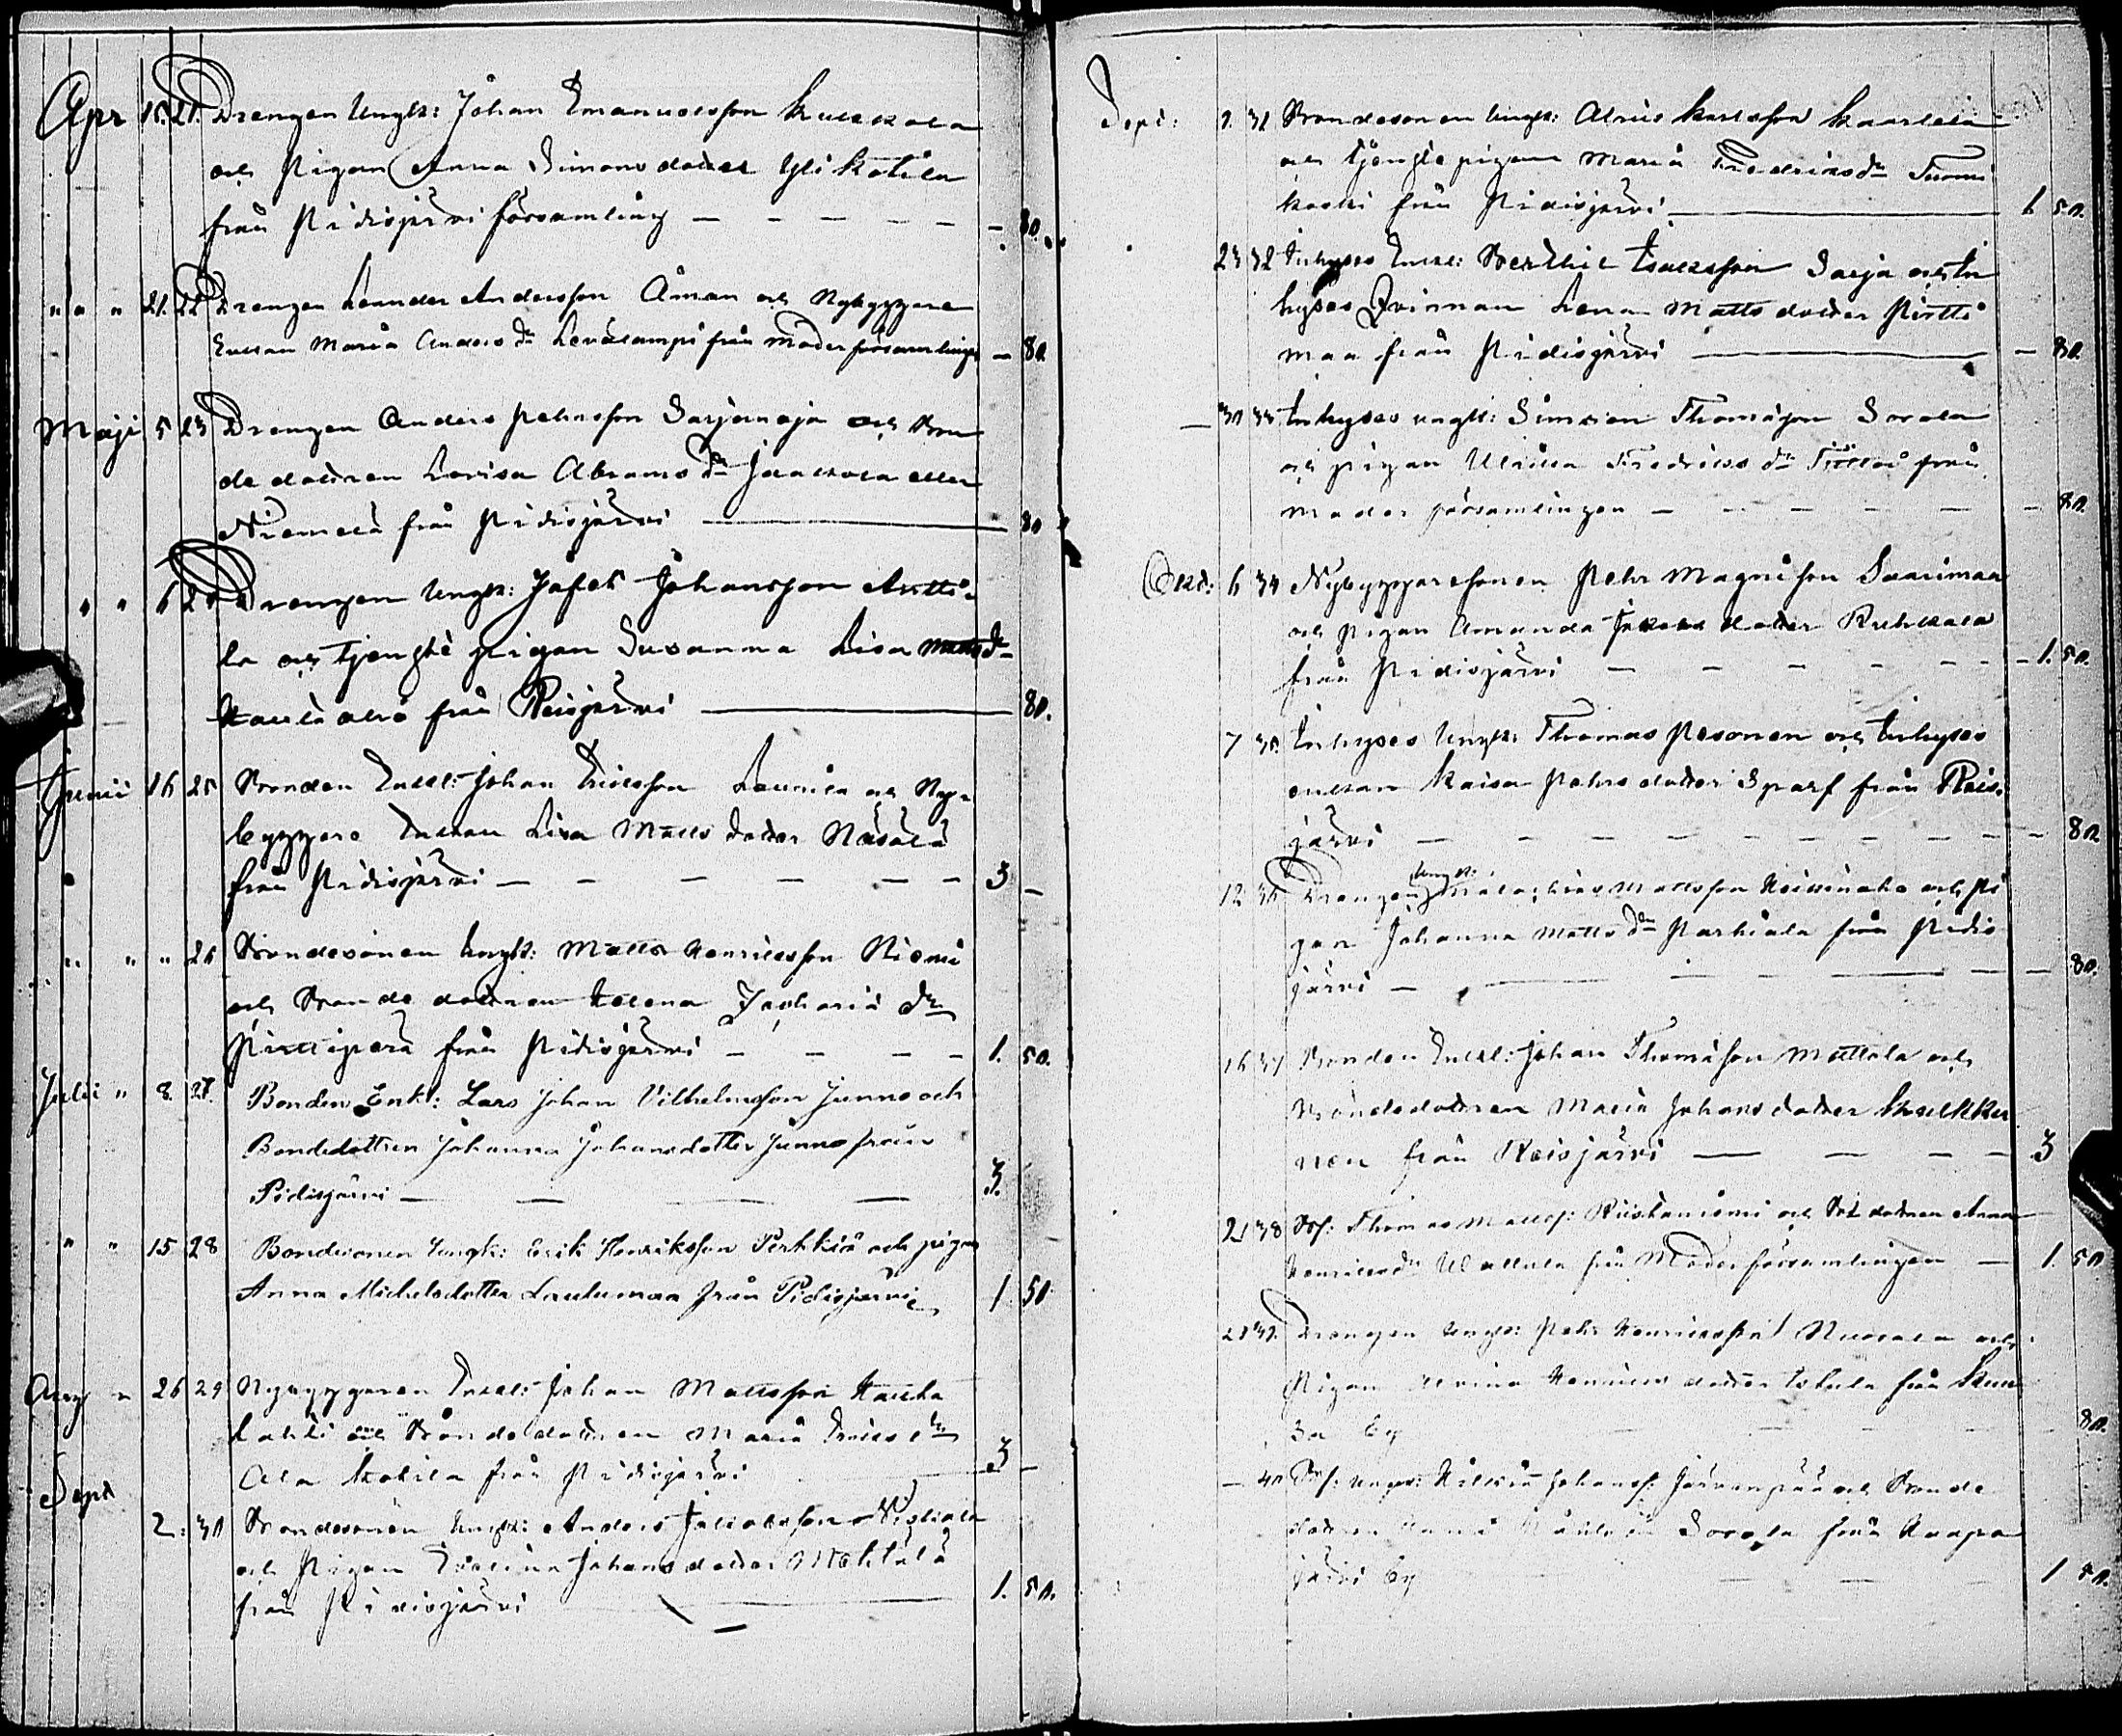 Apr 15. 21. Drengen Ungk: Johan Emanuelsson
och Pigan Anna Simonsdotter Yli Kotila
från Pidisjärvi församling — — — — — 80.
" " " 21. 22 Drengen Leander Andersson Åman och Nybyggare
Enkan Maria Anders dr Leväkampi från moderförsamlingen — 80.
Maji 5 23 Drengen Anders Pehrsson Sarjanoja och Bon
de dottren Lovisa Abrams dr Jaakkola eller
Niemelä från Pidisjärvi — 80
" " 6 24 Drengen Ungk: Jafet Johansson Antti-
la och tjenste pigan Susanna Lisa Matts dr
från Reisjärvi — 80.
Junii 16 25 Bonden Enkl: Johan Ericsson Launila och Ny-
byggare Enkan Lisa Matts dotter Näsälä
från Pidisjärvi — — — — — — 3 —
" " " 26 Bondesonen Ungk: Matts Henriksson Niemi
och Bonde dottren Helena Zacharia dr
Pirttiperä från Pidisjärvi — — — — 1. 50.
Julii " 8. 27. Bonden Enkl: Lars Johan Vilhelmsson Junno och
Bondedottren Johanna Johansdotter Junno från
Pidisjärvi — — — — 3.
" " 15 28 Bondesonen Ungk: Erik Henriksson Perkkiö och pigan
Anna Michelsdotter Laulumaa från Pidisjärvi 1 50
Aug " 26 29 Nybyggaren Enkl: Johan Mattsson Kauka
lahti och Bonde dottren Maria Erics dr
Ala Kotila från Pidisjärvi — 3 —
Sept
2. 30 Bondesonen Ungk: Anders Jakobsson
och Pigan Evelina Johansdotter Mehtälä
från Pidisjärvi — 1. 50.
Sept: 9. 31 Bondesonen Ungk: Karlsson Kaarlela
och tjenste pigan Maria Fredriks dr Tuomi
koski från Pidisjärvi — 1 50.
23 32 Inhyses Enkl: Berthil Isaksson Sarja och In
hyses Qvinnan Lena Matts dotter Pirtti
maa från Pidisjärvi — — 80.
— 30 33 Inhyses ungk: Simeon Thomasson Sorola
och pigan Ulrika Fredriks dr från
moder församlingen — — — — — — 80.
Octob: 6 34 Nybyggaresonen Pehr Magnisson Saarimaa
och pigan Amanda Jakobs dotter Ruhkala
från Pidisjärvi — — — — — — 1. 50.
7 35. Inhyses Ungk: Thomas Pesonen och Inhyses
enkan Kaisa Pehrs dotter Sparf från Reis-
järvi — — — — — — — — 80
12 36 Drengen Ungk: Malachias Mattsson och Pi
gan Johanna Matts dr Parkiala från Pidis
järvi — — — — — 80.
16 37 Bonden Enkl: Johan Thomasson Mattala och
Bondedottren Maria Johansdotter Kaukku
nen från Reisjärvi — — — — 3
21 38 Bs: Thomas Mattss: Ristaniemi och Bd dottren Anna
Henriks dr Wallula från Moderförsamlingen — 1. 50
28 39. Drengen Ungk: Pehr Henriksson och
Pigan Henriks dotter från
by — — — 80.
— 40 Bs: Ungk: Johanss: Järvenpää och Bonde
dottren Sorola från Haapa
järvi by — — — 1 50.